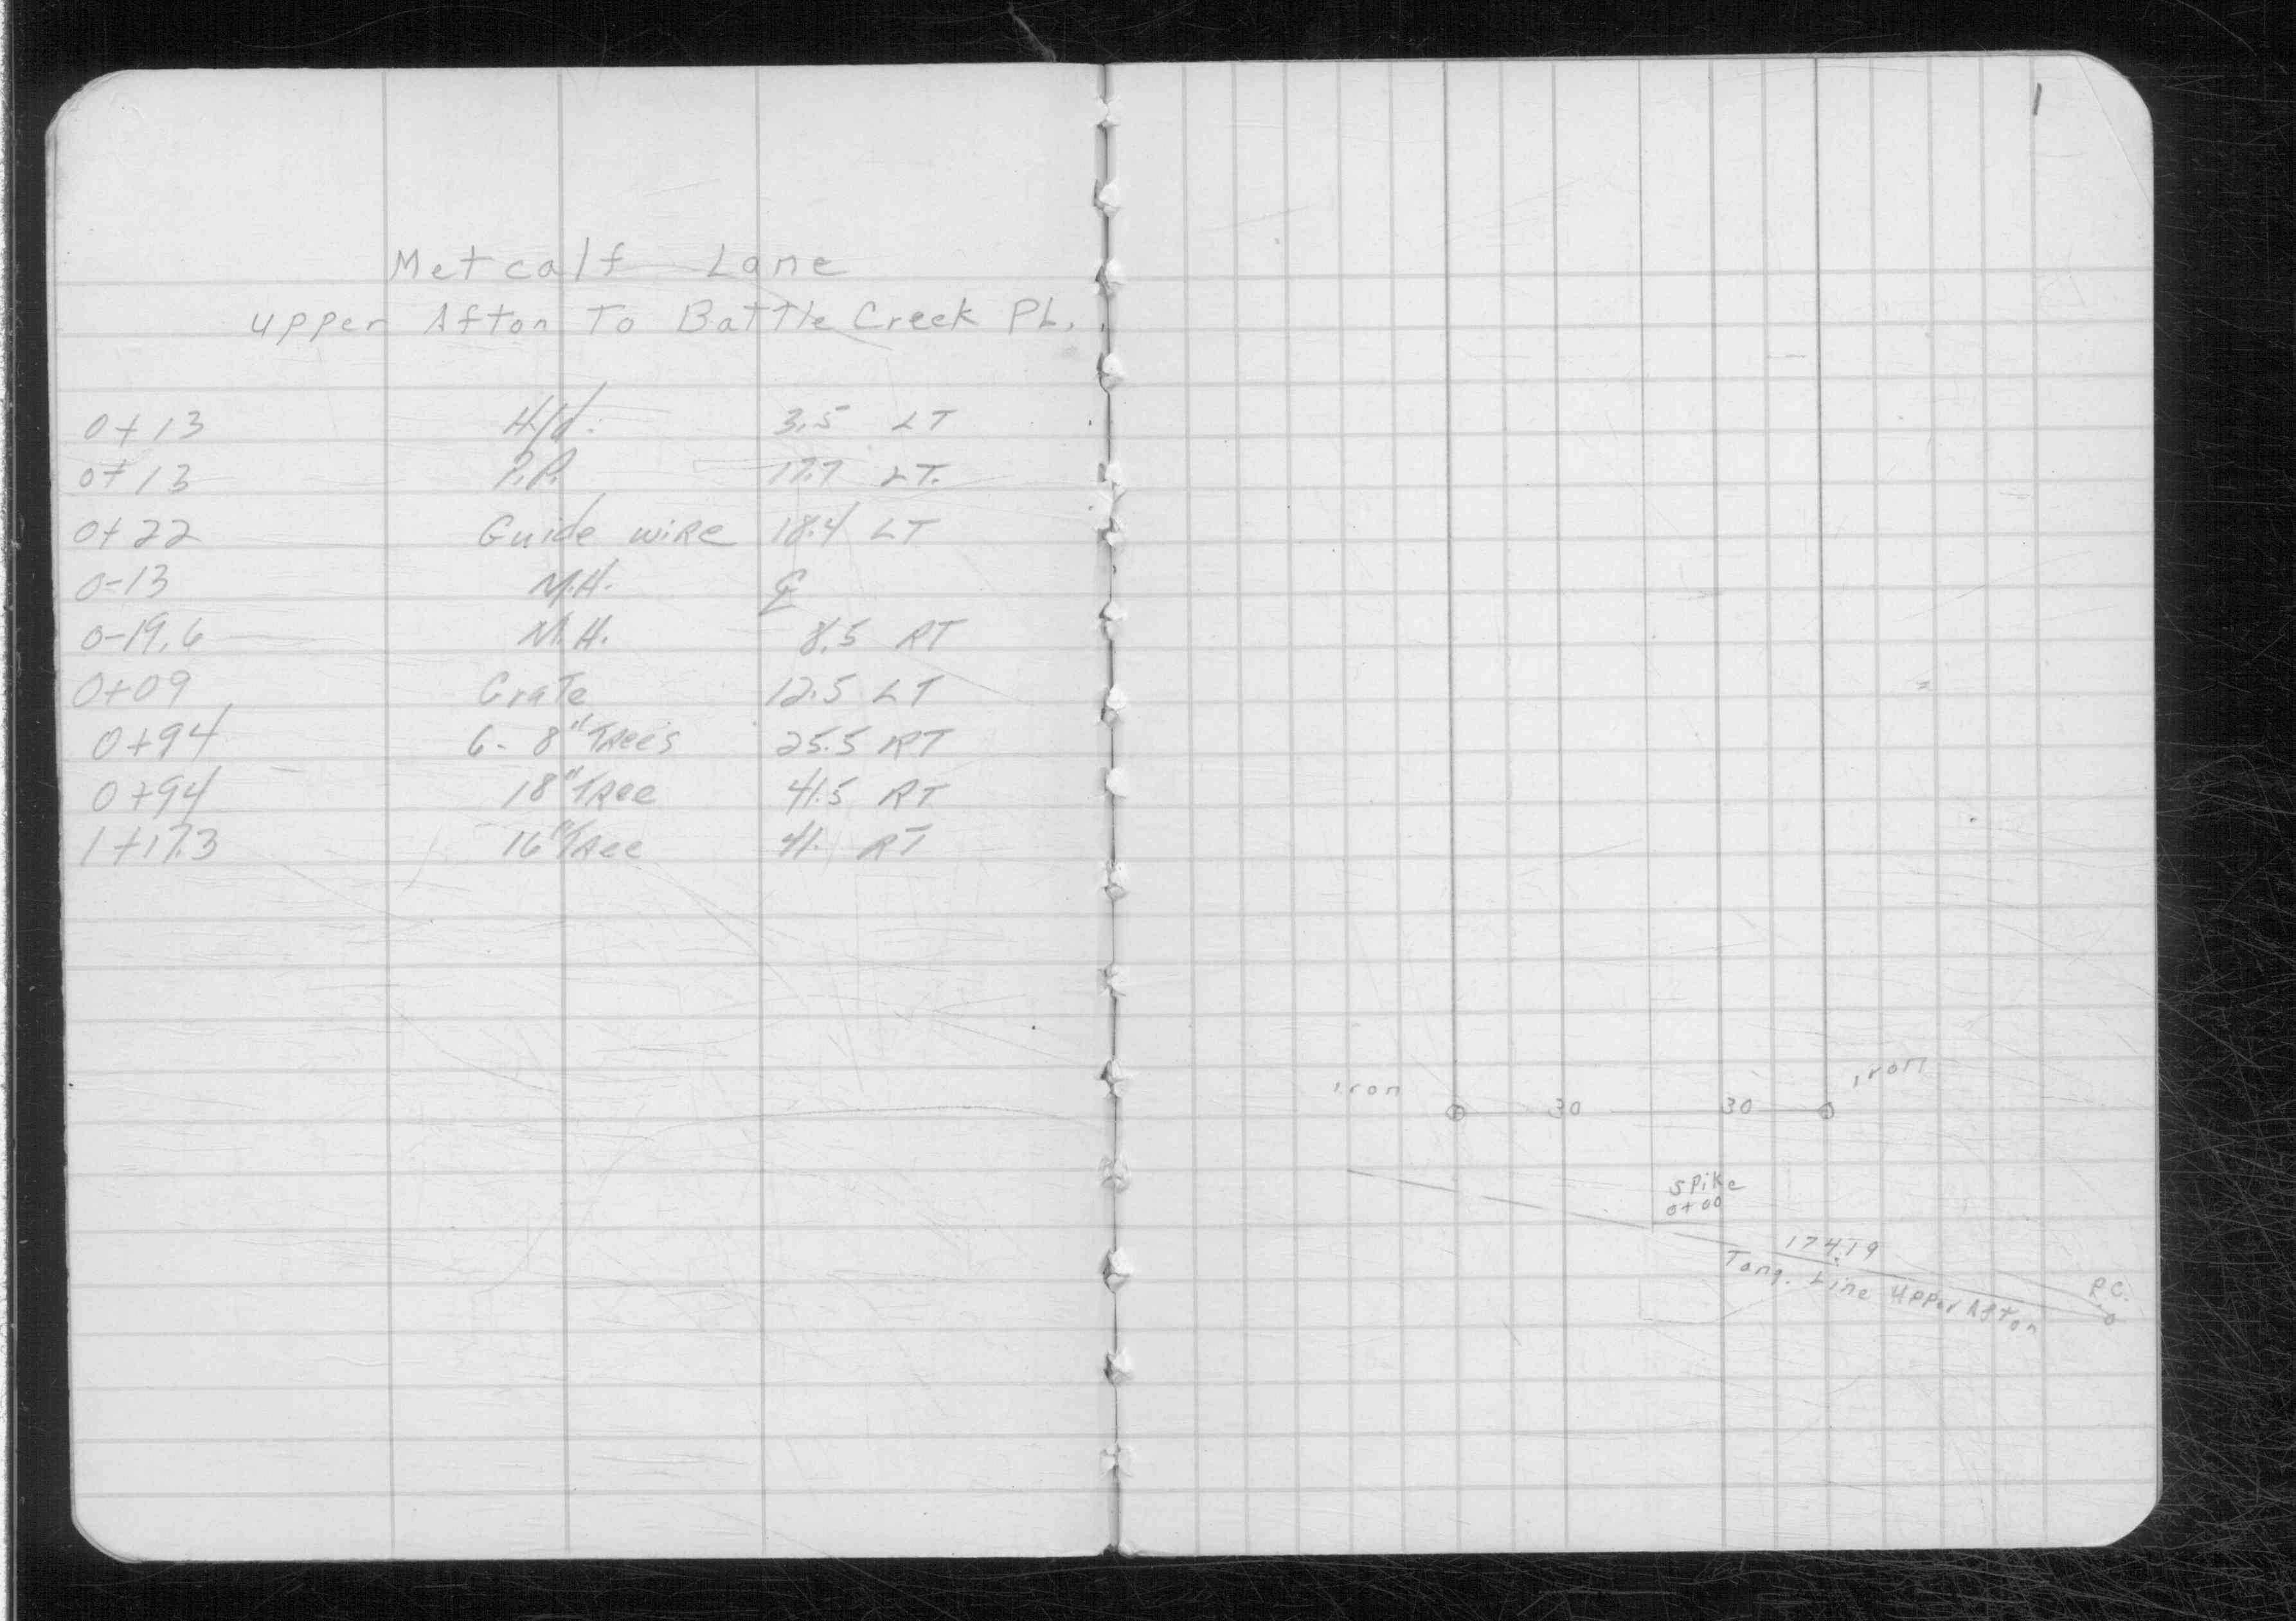 Metcalf Lane
Upper Afton To Battle Creek PL.
0+13 H/d. 3.5 LT
0+13 P.P. 17.7 LT.
0+22 Guide wire 18.4 LT
0-13 M.H. ℄
0-19.6 M.H. 8.5 RT
0+09 Grate 12.5 LT
0+94 6- 8" Trees 25.5 RT
0+94 18" Tree 41.5 RT
1+17.3 16" Tree 41. RT
1
iron 30 30 iron
Spike
0+00
174.19
Tang. Line Upper Afton
P.C.